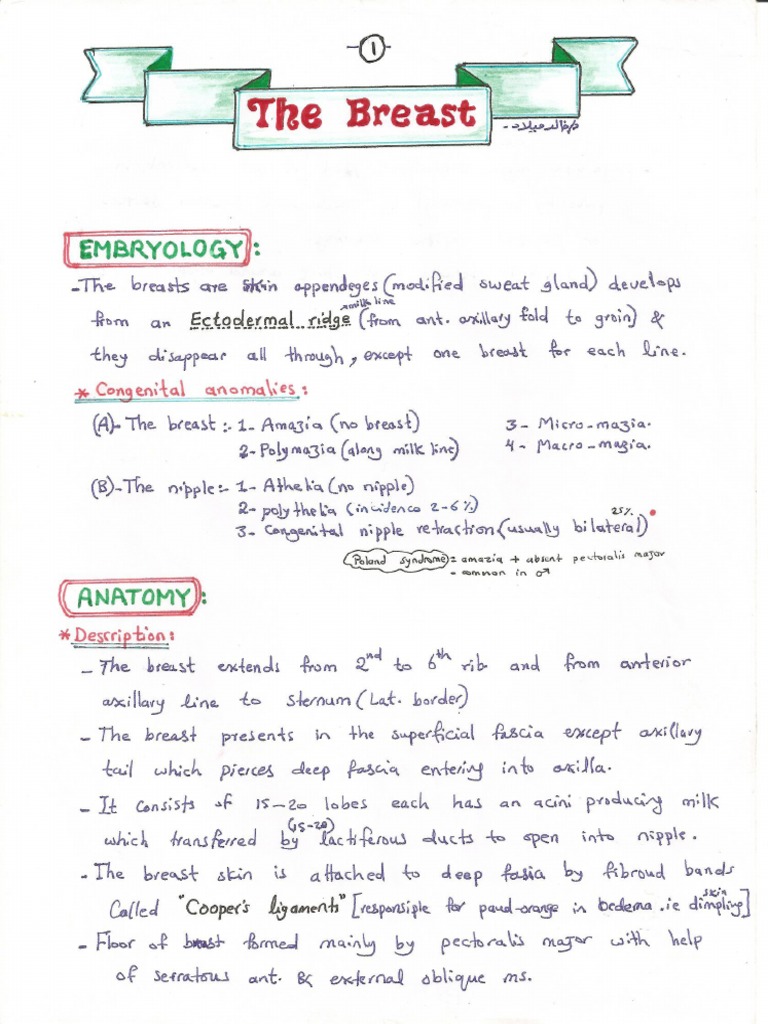 -1-
The Breast
د/خالد ميلاد -
EMBRYOLOGY:
- The breasts are skin appendeges (modified sweat gland) develops
milk line
from an Ectodermal ridge (from ant. axillary fold to groin) &
they disappear all through, except one breast for each line.
* Congenital anomalies:
(A)- The breast:- 1- Amazia (no breast) 3- Micro-mazia.
2- Polymazia (along milk line) 4- Macro-mazia.
(B)- The nipple:- 1- Athelia (no nipple)
2- polythelia (incidence 2-6%)
25%
3- Congenital nipple retraction (usually bilateral)
Poland syndrome = amazia + absent pectoralis major
- common in ♂
ANATOMY:
* Description:
- The breast extends from 2nd to 6th rib and from anterior
axillary line to sternum (Lat. border)
- The breast presents in the superficial fascia except axillary
tail which pierces deep fascia entering into axilla.
- It consists of 15-20 lobes each has an acini producing milk
(15-20)
which transferred by lactiferous ducts to open into nipple.
- The breast skin is attached to deep fasia by fibroud bands
skin
Called "Cooper's ligaments" [responsiple for paud-orange in oedema .ie dimpling]
- Floor of breast formed mainly by pectoralis major with help
of serratous ant. & external oblique ms.